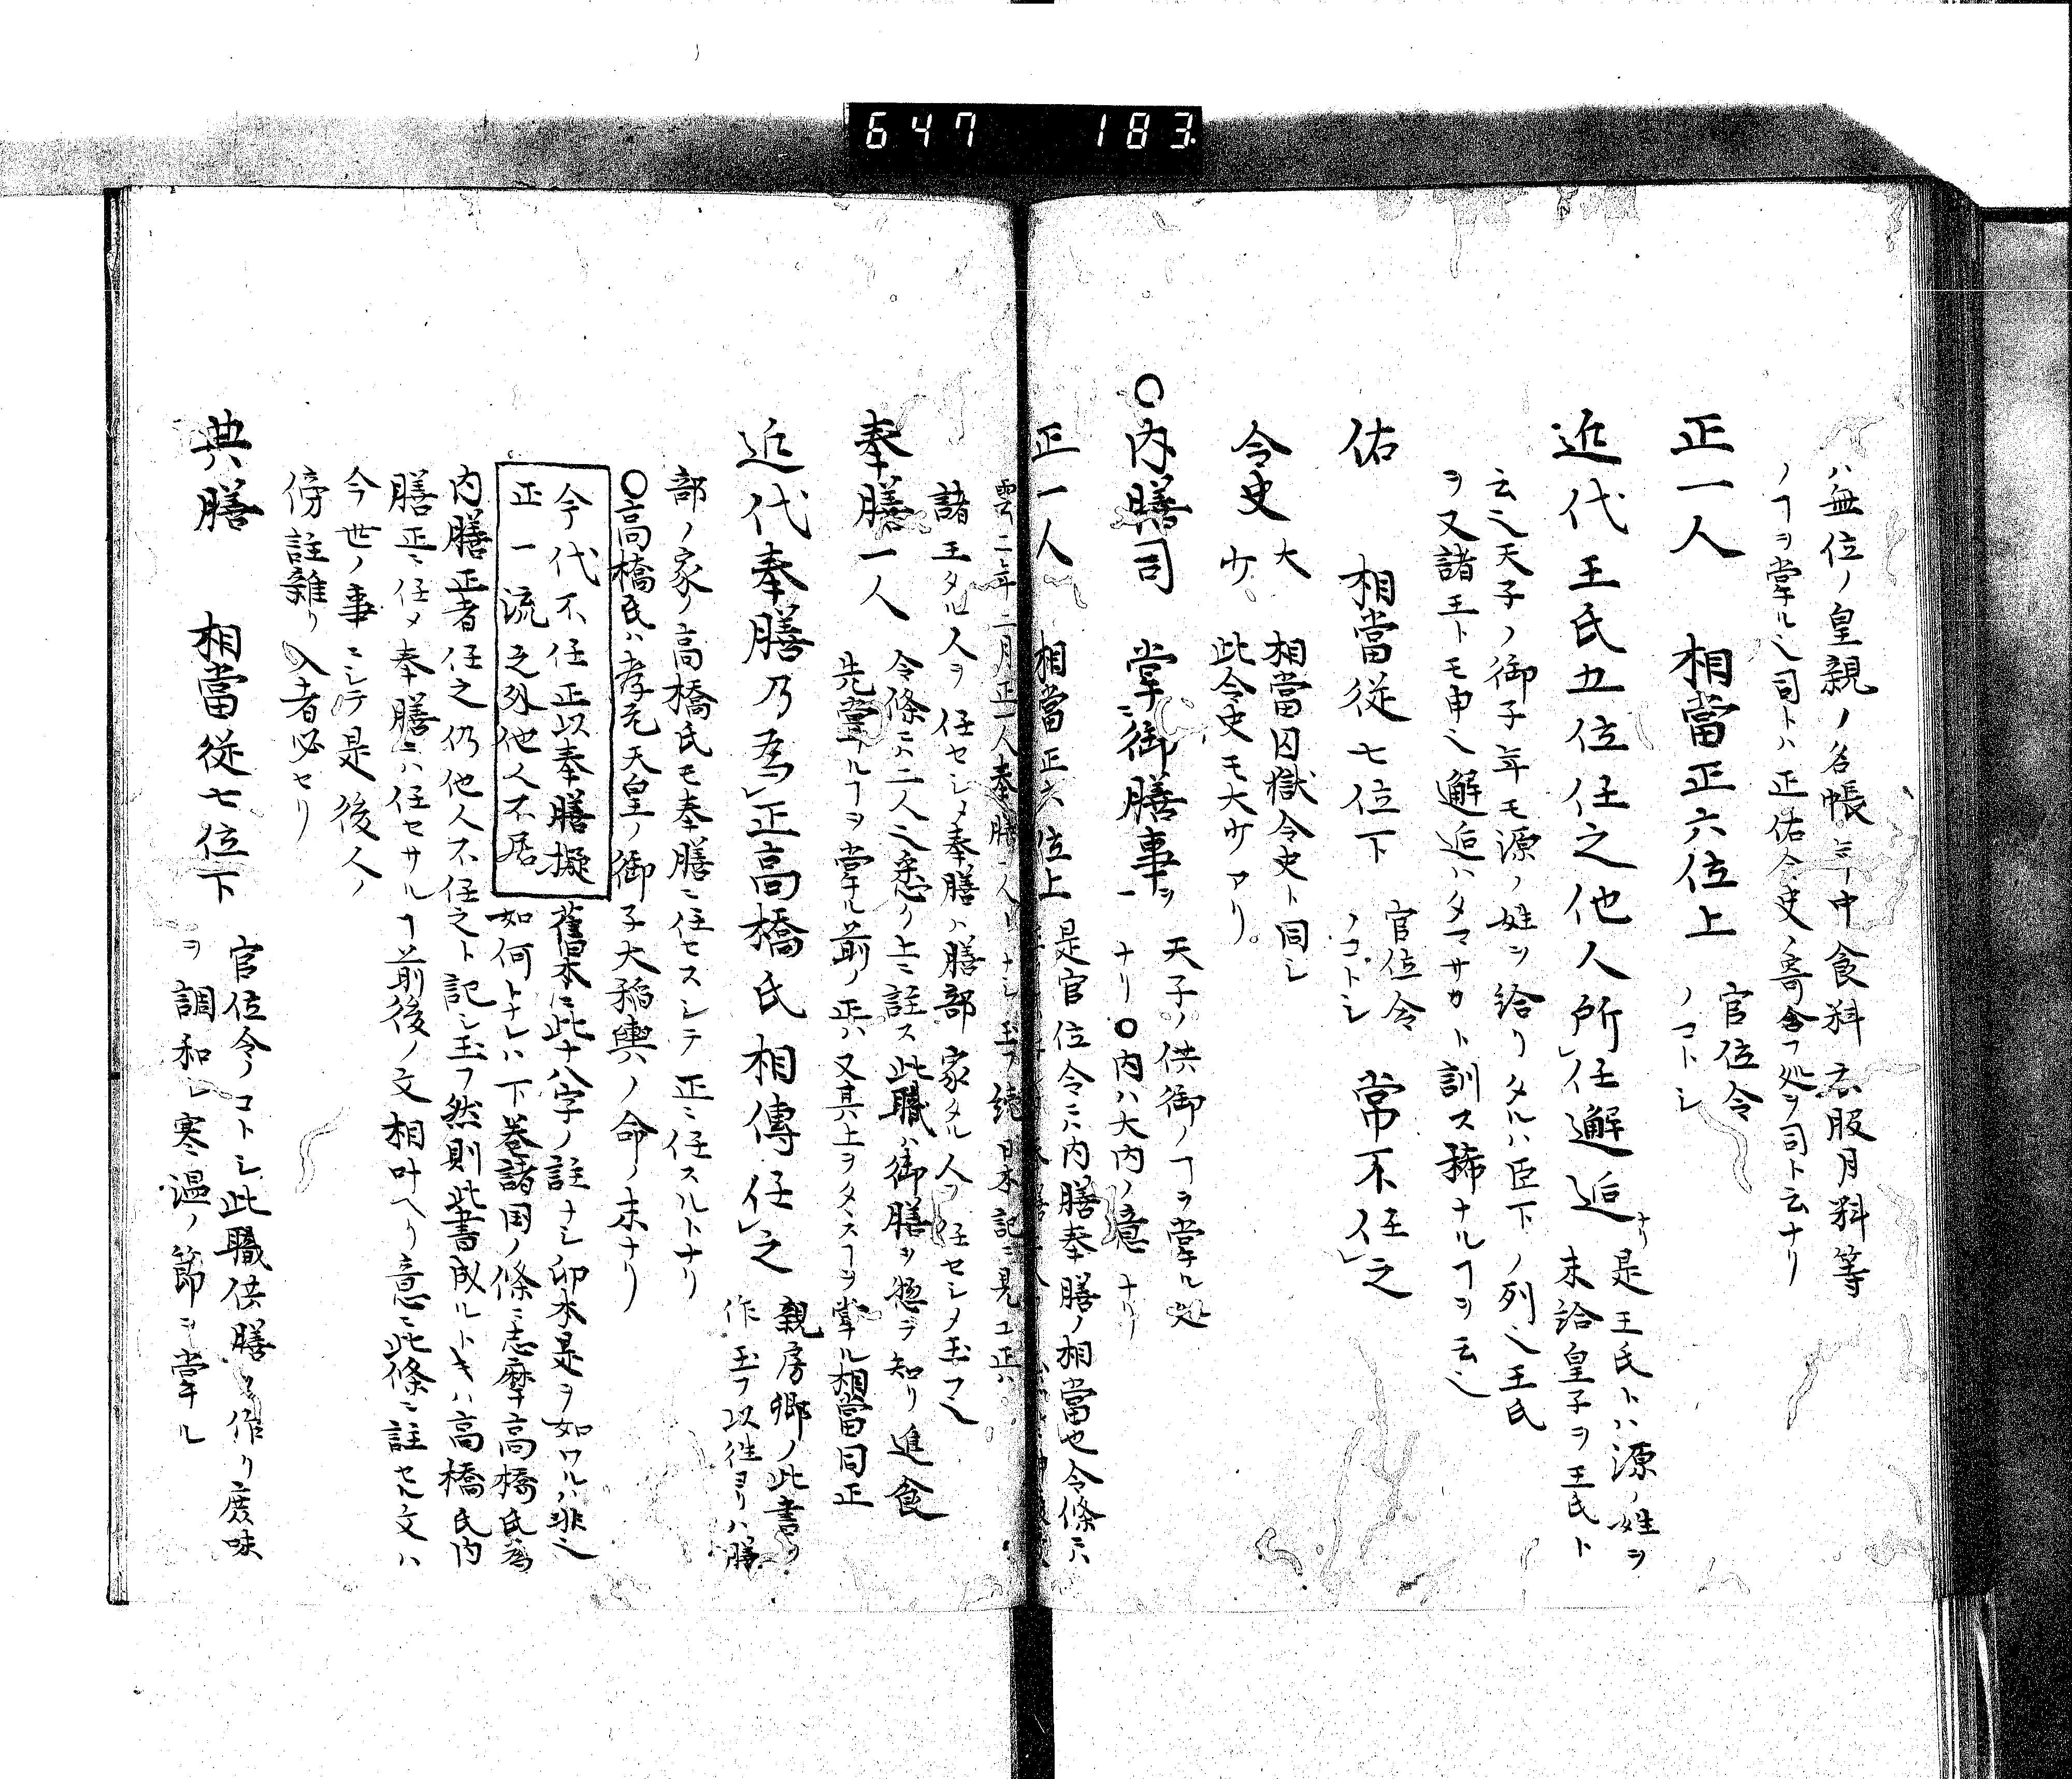 647 183
ハ無位ノ皇親ノ名帳ニテ中食料衣服月料等
ノヿヲ掌ル也司トハ正佑令史ノ寄合フ処ヲ司ト云ナリ
正一人 相當正六位上 官位令
ノコトシ
近代王氏五位任之他人所任邂逅ナリ 是王氏トハ源ノ姓ヲ
未給皇子ヲ王氏ト
云也天子ノ御子年モ源ノ姓ヲ給リタルハ臣下ノ列也王氏
ヲ又諸王トモ申也邂逅ハタマサカト訓ス稀ナルヿヲ云也
佑 相當従七位下 官位令
ノコトシ 常不任之
令史 大
少 相當囚獄令史ト同シ
此令史モ大少アリ
〇内膳司 掌御膳事ヲ 天子ノ供御ノヿヲ掌ル処
ナリ〇内ハ大内ノ意ナリ
正一人 相當正六位上 是官位令ニハ内膳奉膳ノ相當也令條ニハ
雲二年二月正一人奉膳二人トナシ玉フ續日本記ニ見ユ正ハ
諸王タル人ヲ任セシメ奉膳ハ膳部家タル人ヲ任セシメ玉フ也
奉膳一人 令條ニハ二人也悉ク上ニ註ス此職ハ御膳ヲ惣テ知リ進食
先嘗ルヿヲ掌ル前ノ正ハ又其上ヲタヽスヿヲ掌ル相當同正
近代奉膳乃為正高橋氏相傳任之 親房卿ノ此書ヲ
作玉フ以往ヨリハ膳
部ノ家ノ高橋氏モ奉膳ニ任セスシテ正ニ任スルトナリ
〇高橋氏ハ孝元天皇ノ御子大稲輿ノ命ノ末ナリ
今代不任正以奉膳擬
正一流之外他人不居
舊本ニ此十八字ノ註ナシ卯木是ヲ如ワルハ非也
如何トナレハ下巻諸国ノ條ニ志摩高橋氏為
内膳正者任之仍他人不任之ト記シ玉フ然則此書成ルトキハ高橋氏内
膳正ニ任メ奉膳ニハ任セサルヿ前後ノ文相叶ヘリ意ニ此條ニ註セル文ハ
今世ノ事ニシテ是後人ノ
傍註雑リ入者必セリ
典膳 相當従七位下 官位令ノコトシ此職供膳ヲ作リ庶味
ヲ調和シ寒温ノ節ヲ掌ル